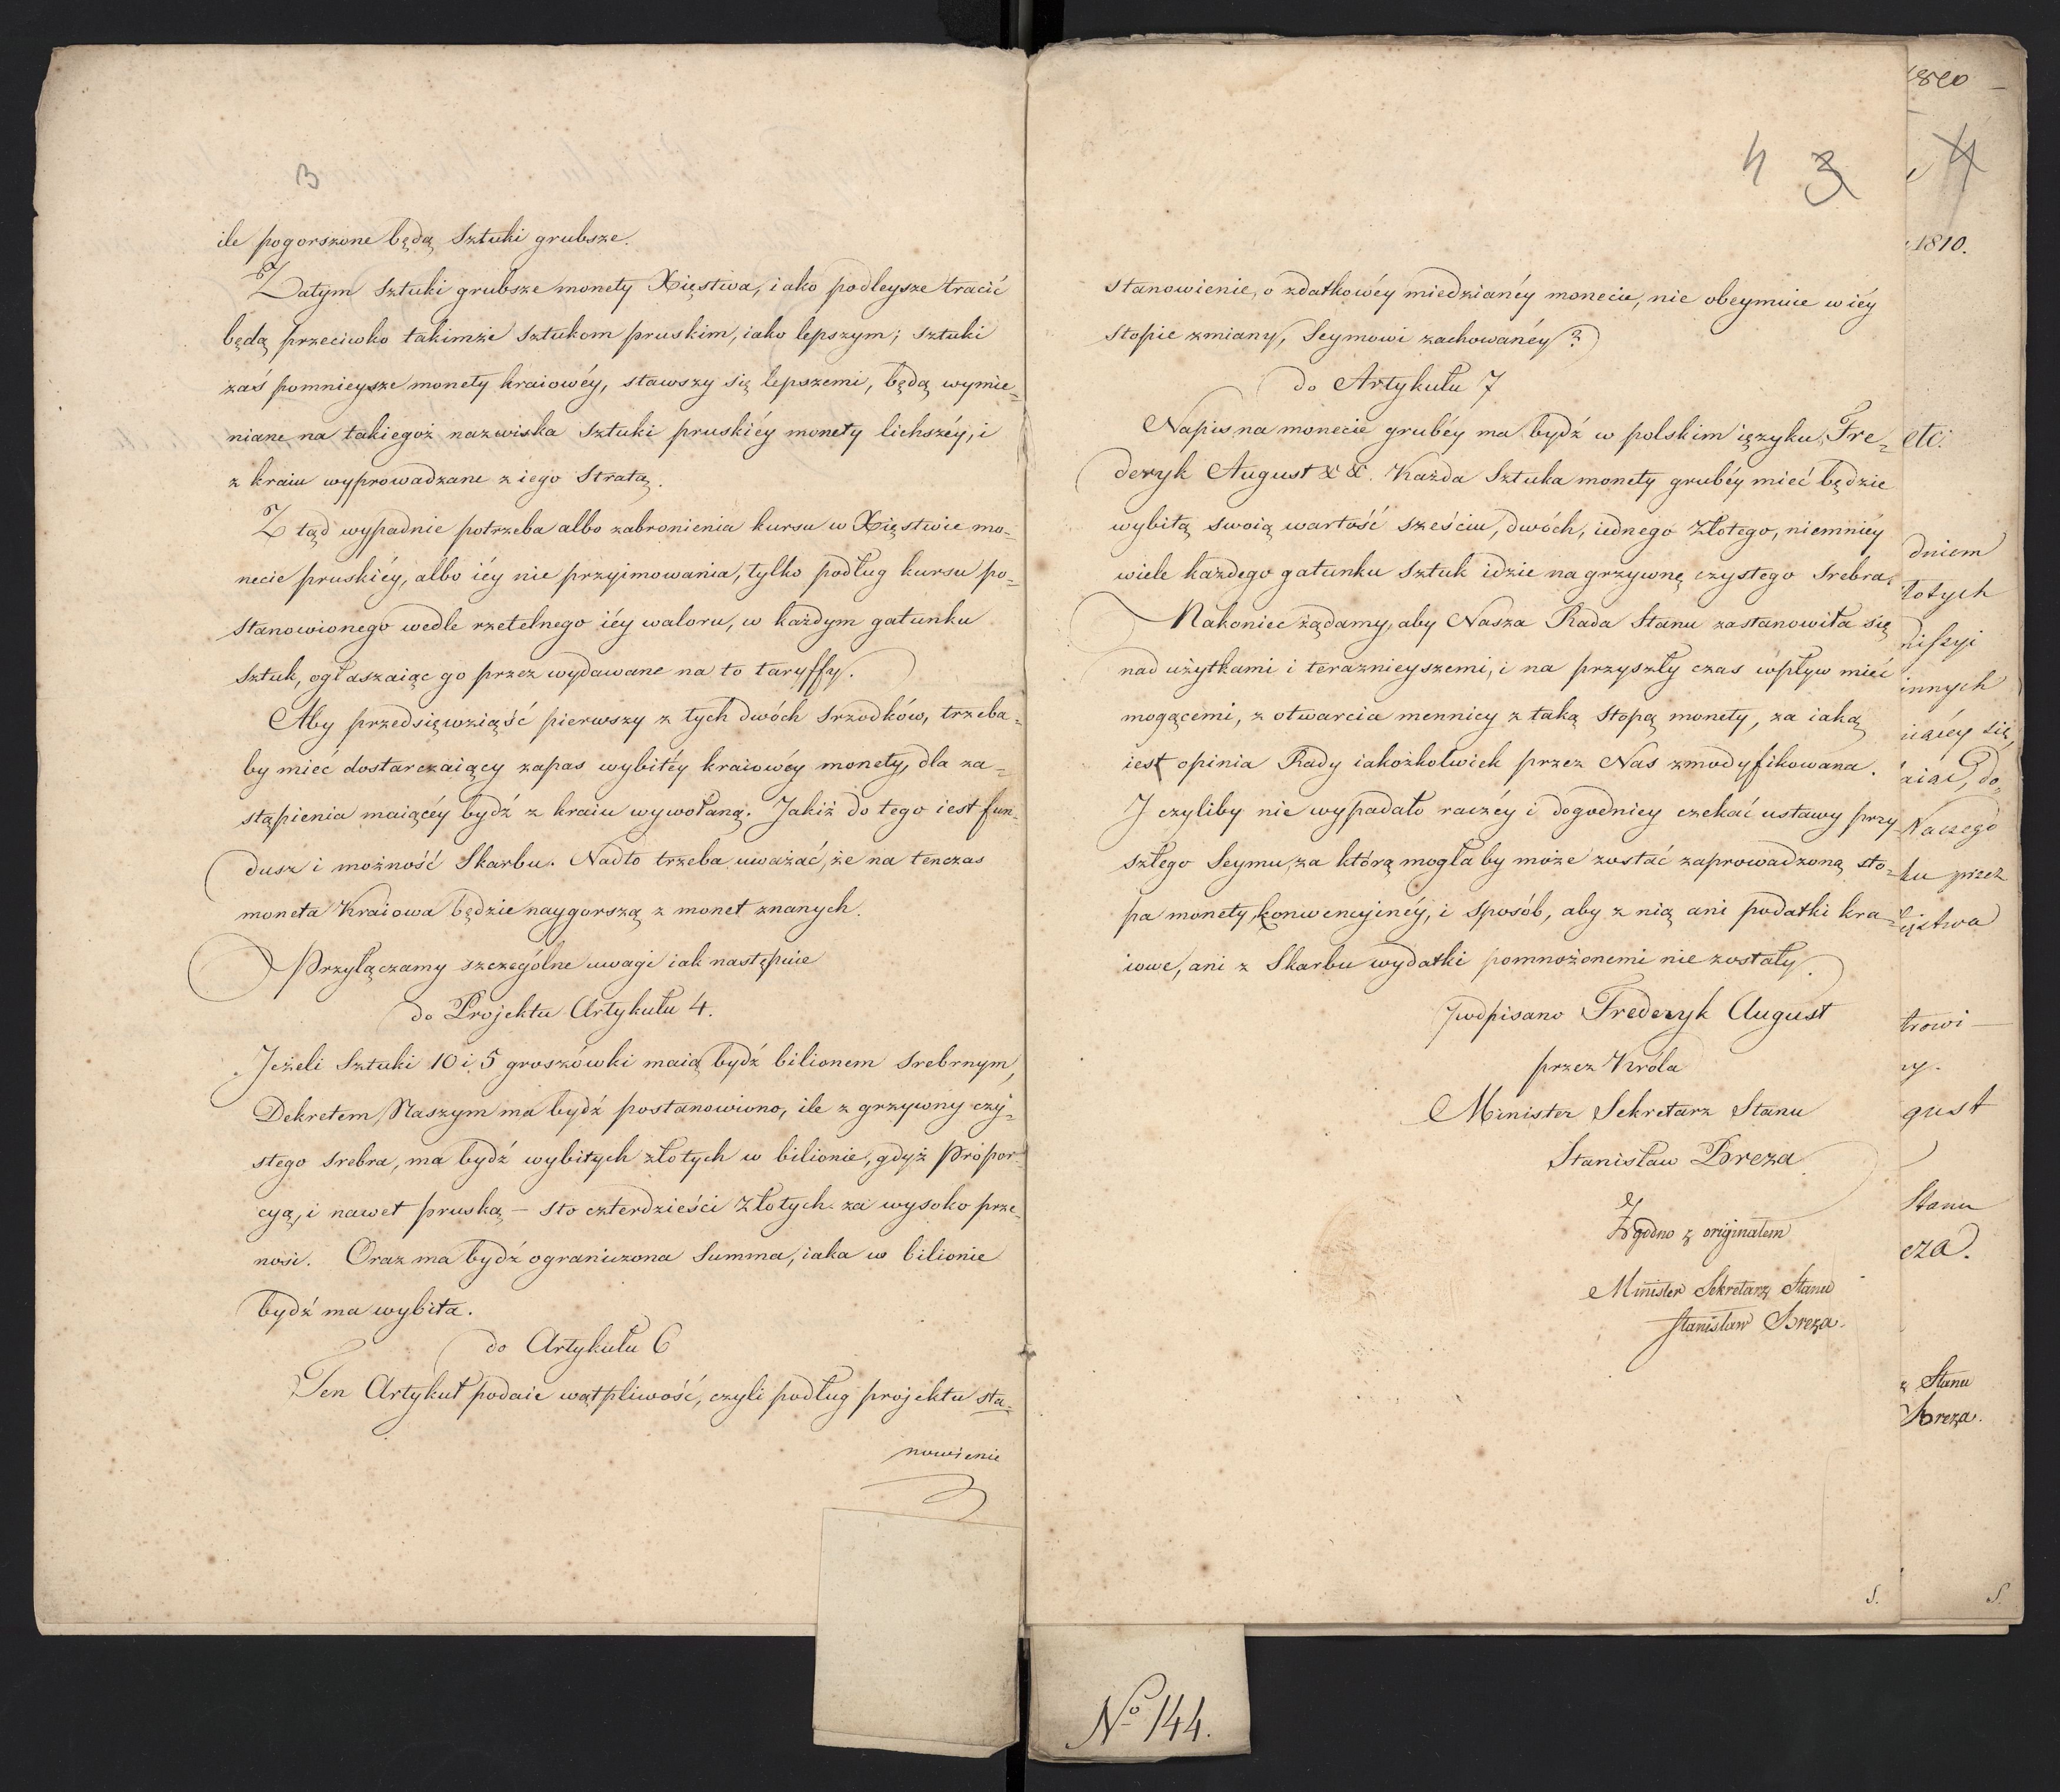 3
ile pogorszone będą Sztuki grubsze.
Zatym Sztuki grubsze monety Xięstwa, iako podleysze tracić
będą przeciwko takimże Sztukom pruskim, iako lepszym; Sztuki
zaś pomnieysze monety kraiowéy, stawszy się lepszemi, będą wymie=
niane na takiegoż nazwiska Sztuki pruskiéy monety lichszéy, i
z kraiu wyprowadzane z iego Stratą.
Z tąd wypadnie potrzeba albo zabronienia kursu w Xięstwie mo=
necie pruskiéy, albo iéy nie przyimowania, tylko podług kursu po=
stanowionego wedle rzetelnego iéy waloru, w każdym gatunku
sztuk, ogłaszaiąc go przez wydawane na to taryffy.
Aby przedsięwziąść pierwszy z tych dwóch srzodków, trzeba=
by mieć dostarczaiący zapas wybitéy kraiowéy monety, dla za=
stąpienia maiącéy bydź z kraiu wywołaną. Jakiż do tego iest fun=
dusz i możność Skarbu. Nadto trzeba uważać, że na tenczas
moneta Kraiowa będzie naygorszą z monet znanych.
Przyłączamy szczególne uwagi iak następuie
do Projektu Artykułu 4.
Jeżeli Sztuki 10 i 5 groszówki maią bydź bilionem srebrnym,
Dekretem Naszym ma bydź postanowiono, ile z grzywny czy=
stego srebra, ma bydź wybitych złotych w bilionie, gdyż propor=
cyą, i nawet pruską – sto czterdzieści Złotych za wysoko prze=
nosi. Oraz ma bydź ograniczona Summa, iaka w bilionie
bydź ma wybita.
do Artykułu 6
Ten Artykuł podaie wątpliwość, czyli podług projektu sta=
nowienie
4 3
stanowienie, o zdatkowéy miedzianéy monecie, nie obeymuie w iéy
stopie zmiany, Seymowi zachowanéy?
do Artykułu 7
Napis na monecie grubéy ma bydź w polskim ięzyku, Fre=
deryk August & &. Każda Sztuka monety grubéy mieć będzie
wybitą swoią wartość sześciu, dwóch, iednego Złotego, niemniéy
wiele każdego gatunku Sztuk idzie na grzywnę czystego srebra.
Nakoniec żądamy, aby Nasza Rada Stanu zastanowiła się
nad użytkami i teraznieyszemi, i na przyszły czas wpływ mieć
mogącemi, z otwarcia mennicy z taką stopą monety, za iaką
iest opinia Rady iakożkolwiek przez Nas zmodyfikowana.
J czyliby nie wypadało raczéy i dogodniey czekać ustawy przy
szłego Seymu, za którą mogła by może zostać zaprowadzoną sto=
pa monety konwencyinéy, i sposób, aby z nią ani podatki kra=
iowe, ani z Skarbu wydatki pomnożonemi nie zostały.
podpisano Fryderyk August
przez Króla
Minister Sekretarz Stanu
Stanisław Breza
Zgodno z originałem
Minister Sekretarz Stanu
Stanisław Breza.
S.
4
1810.
etc.
dniem
innych
Naszego
ku przez
gust
Stanu
Stanu
Breza.
S.
No 144.